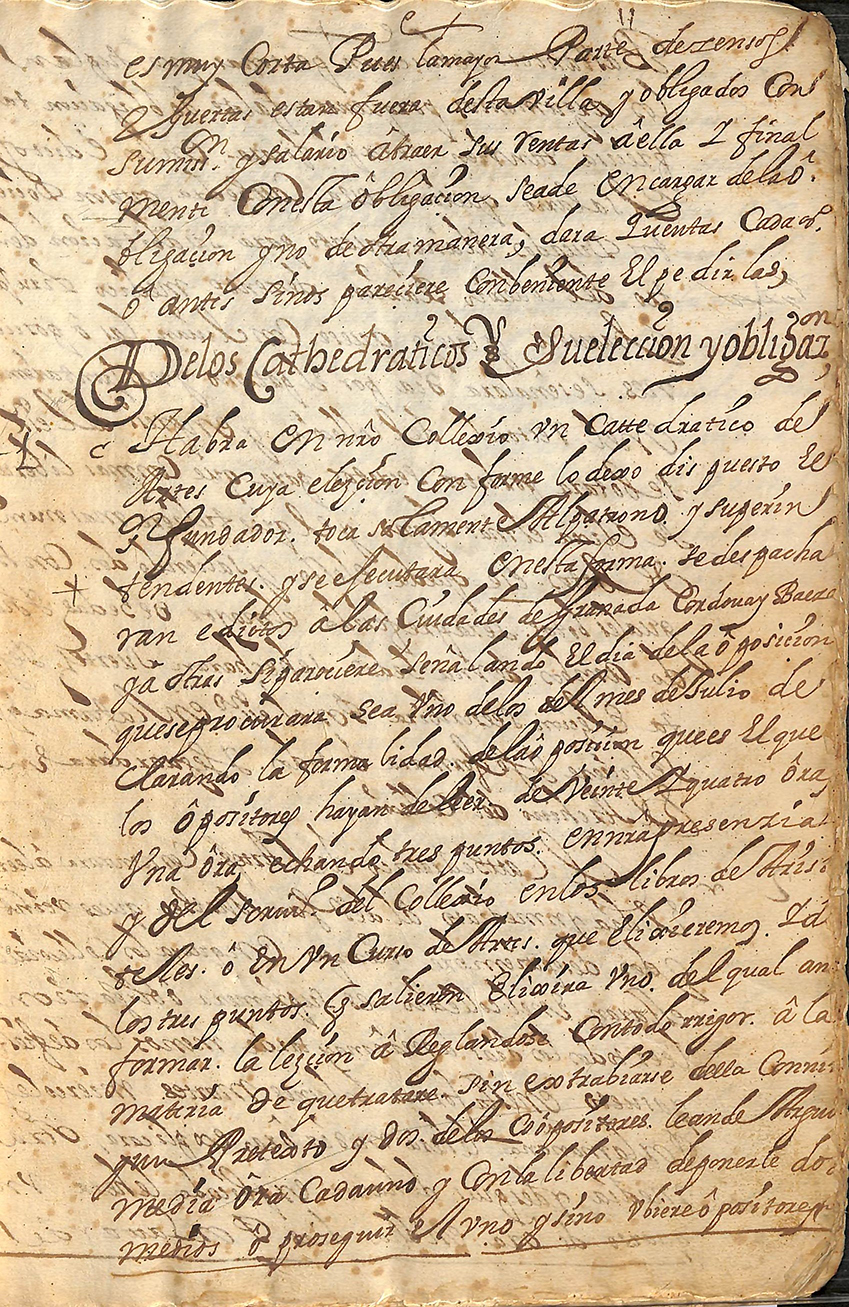 11
es muy Corta Pues lamayor Parte dezensos
y huertas estan fuera desta Villa y obligados Con
sumisn. y salario âtraer sus rentas âella Y final
mente Conesta ôbligaçion seade encargar delaô.
bligaçion y no de otra manera, dara Quentas Cada ao.
ô antes sinos pareciere Conbeniente El pedirlas,
Delos Cathedraticos Y Su eleccion y obligazon
Habra en nro Collexio Vn Cattedratico de
Artes Cuya elezçion Conforme lo dexo dispuesto El
fundador. toca solamente Alpatrono y superin
tendentes. y se esecutara en esta forma. se despacha
ran edictos âlas Ciudades de Granada Cordova y Baeza
y â otras si pareciere señalando El dia dela ôposiçion
que se procurara sea Vno delos del mes de Iulio de
clarando la formalidad dela ôposiçion que es El que
los ôpositores hayan de leer de Veinte Y quatro ôras
Vna ôra echando tres puntos. en nra presenzia
y del del Collexio en los libros de Aris
teles. ô en Vn Curso de Artes. que Elixieremos. Y de
los tres puntos q salieren Elixira Vno. del qual an
formar. la lezçion âReglandose Contodo rrigor. â la
materia de que tratare. sin extrabiarse della Connin
gun Pretexto y dos. delos Coôpositores. leande Argui
media ôra Cadauno y Con la libertad deponerle dos
medios ô proseguir Vno y sino Vbiere ôpositores